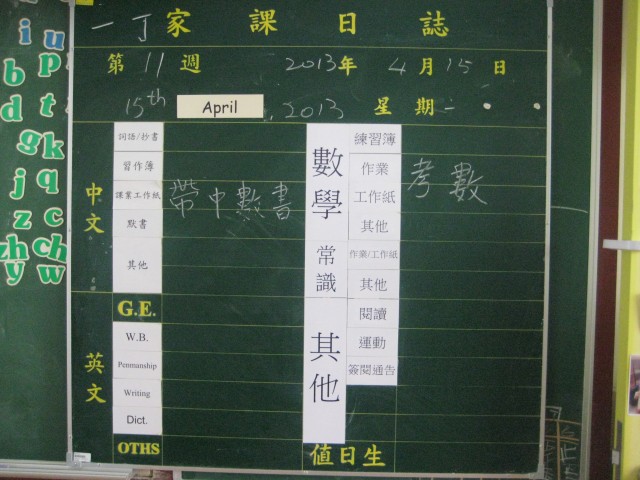 一丁家課日誌
第11週 2013年4月15日
15th April, 2013 星期一
詞語/抄書
習作簿
課業工作紙
默書
其他
中文
帶中數書
G.E.
W.B.
Penmanship
Writing
Dict.
OTHS
英文
數學
練習簿
作業
工作紙
其他
考數
常識
作業/工作紙
其他
其他
閱讀
運動
簽閱通告
值日生
i u
b p
d t
g k
j q
z c
zh ch
y w